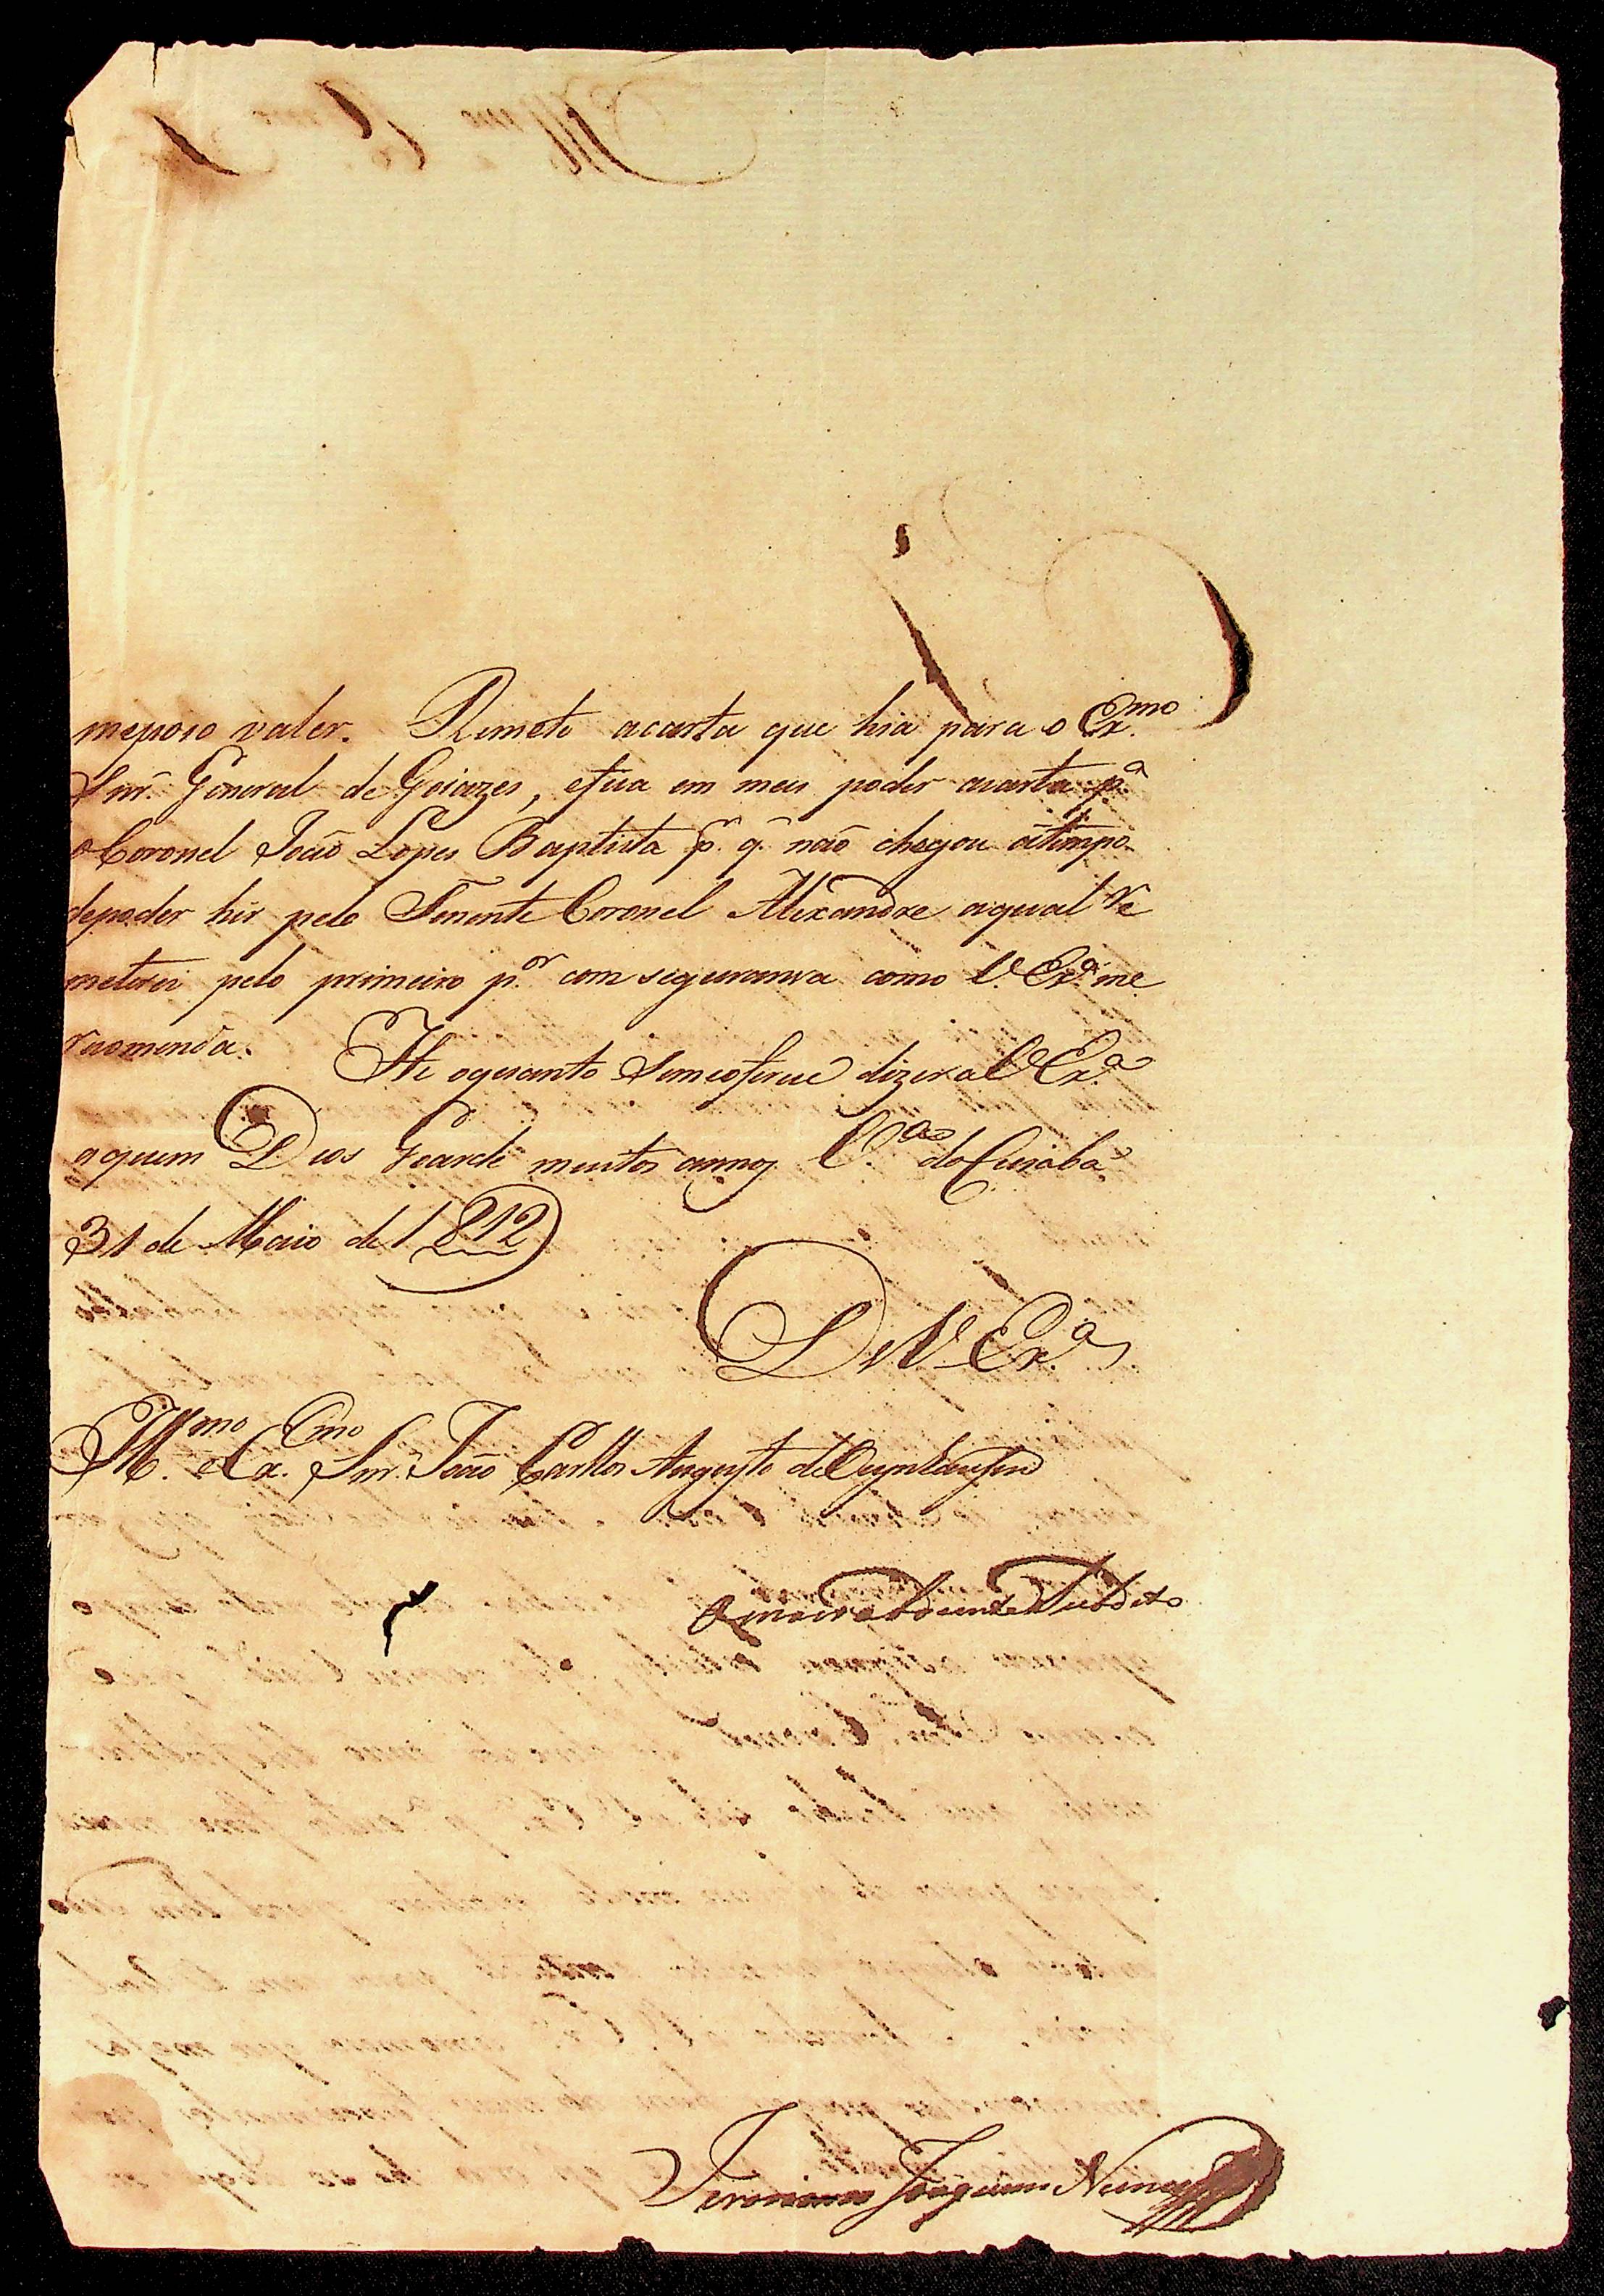 meposo valer. Remeto acarta que hia para o Ex.mo
Snr. General de Goiazes, efica em meu poder acarta p.a
o Coronel João Lopes Baptista p. q. não chegou átempo
depoder hir pelo Tenente Coronel Alexandre aqual re
meterei pelo primeiro p.or com seguransa como V. Ex.a me
recomenda. He oquanto semeoferece dizer a V. Ex.a
aquem Deos Guarde muitos annos. V.a do Cuiabá
31 de Maio de 1812
De V. Ex.a
Ill.mo e Ex.mo Snr. João Carllos Augusto de Oeynhausen
Subdito
Jeronimo Joaquim Nunes